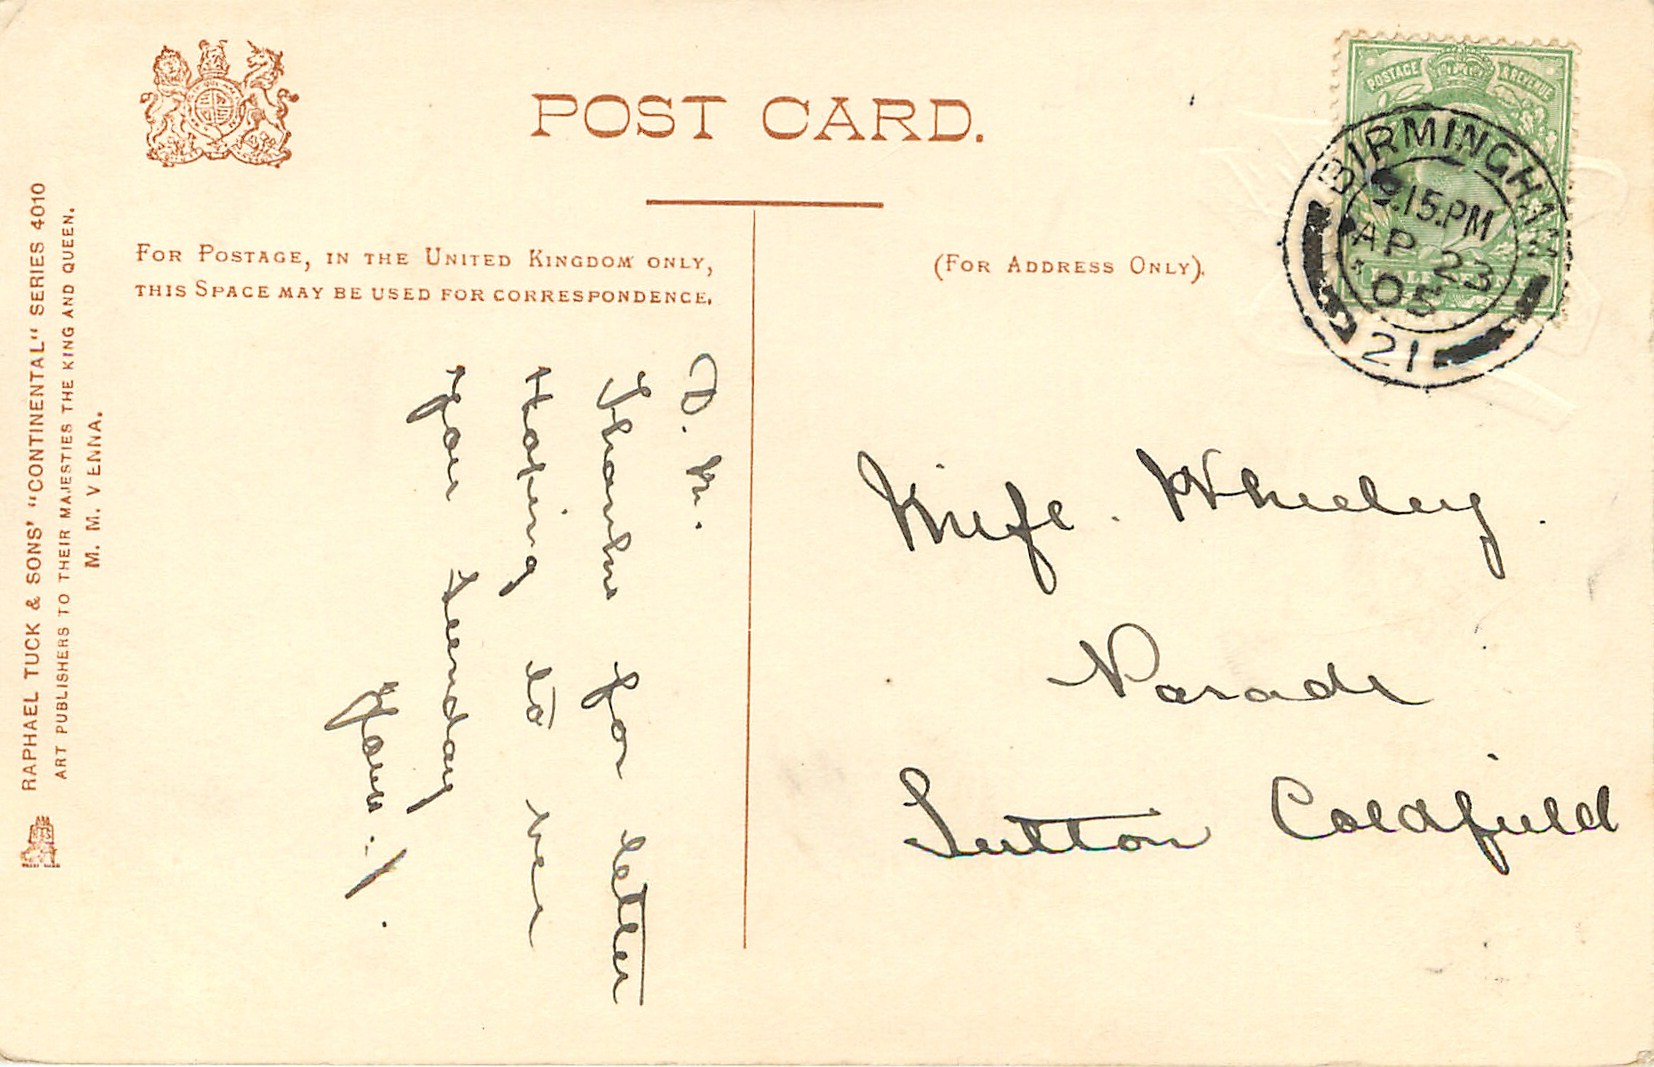 POST CARD.
FOR POSTAGE, IN THE UNITED KINGDOM ONLY,
THIS SPACE MAY BE USED FOR CORRESPONDENCE.
(FOR ADDRESS ONLY).
POSTAGE & REVENUE
BIRMINGHAM
9.15.PM
AP 23
05
21
RAPHAEL TUCK & SONS' "CONTINENTAL" SERIES 4010
ART PUBLISHERS TO THEIR MAJESTIES THE KING AND QUEEN.
M. M. VIENNA.
D. N.
Thanks for letter
Hoping to see
you Sunday
Yours
Wheeley.
Parade
Sutton Coldfield